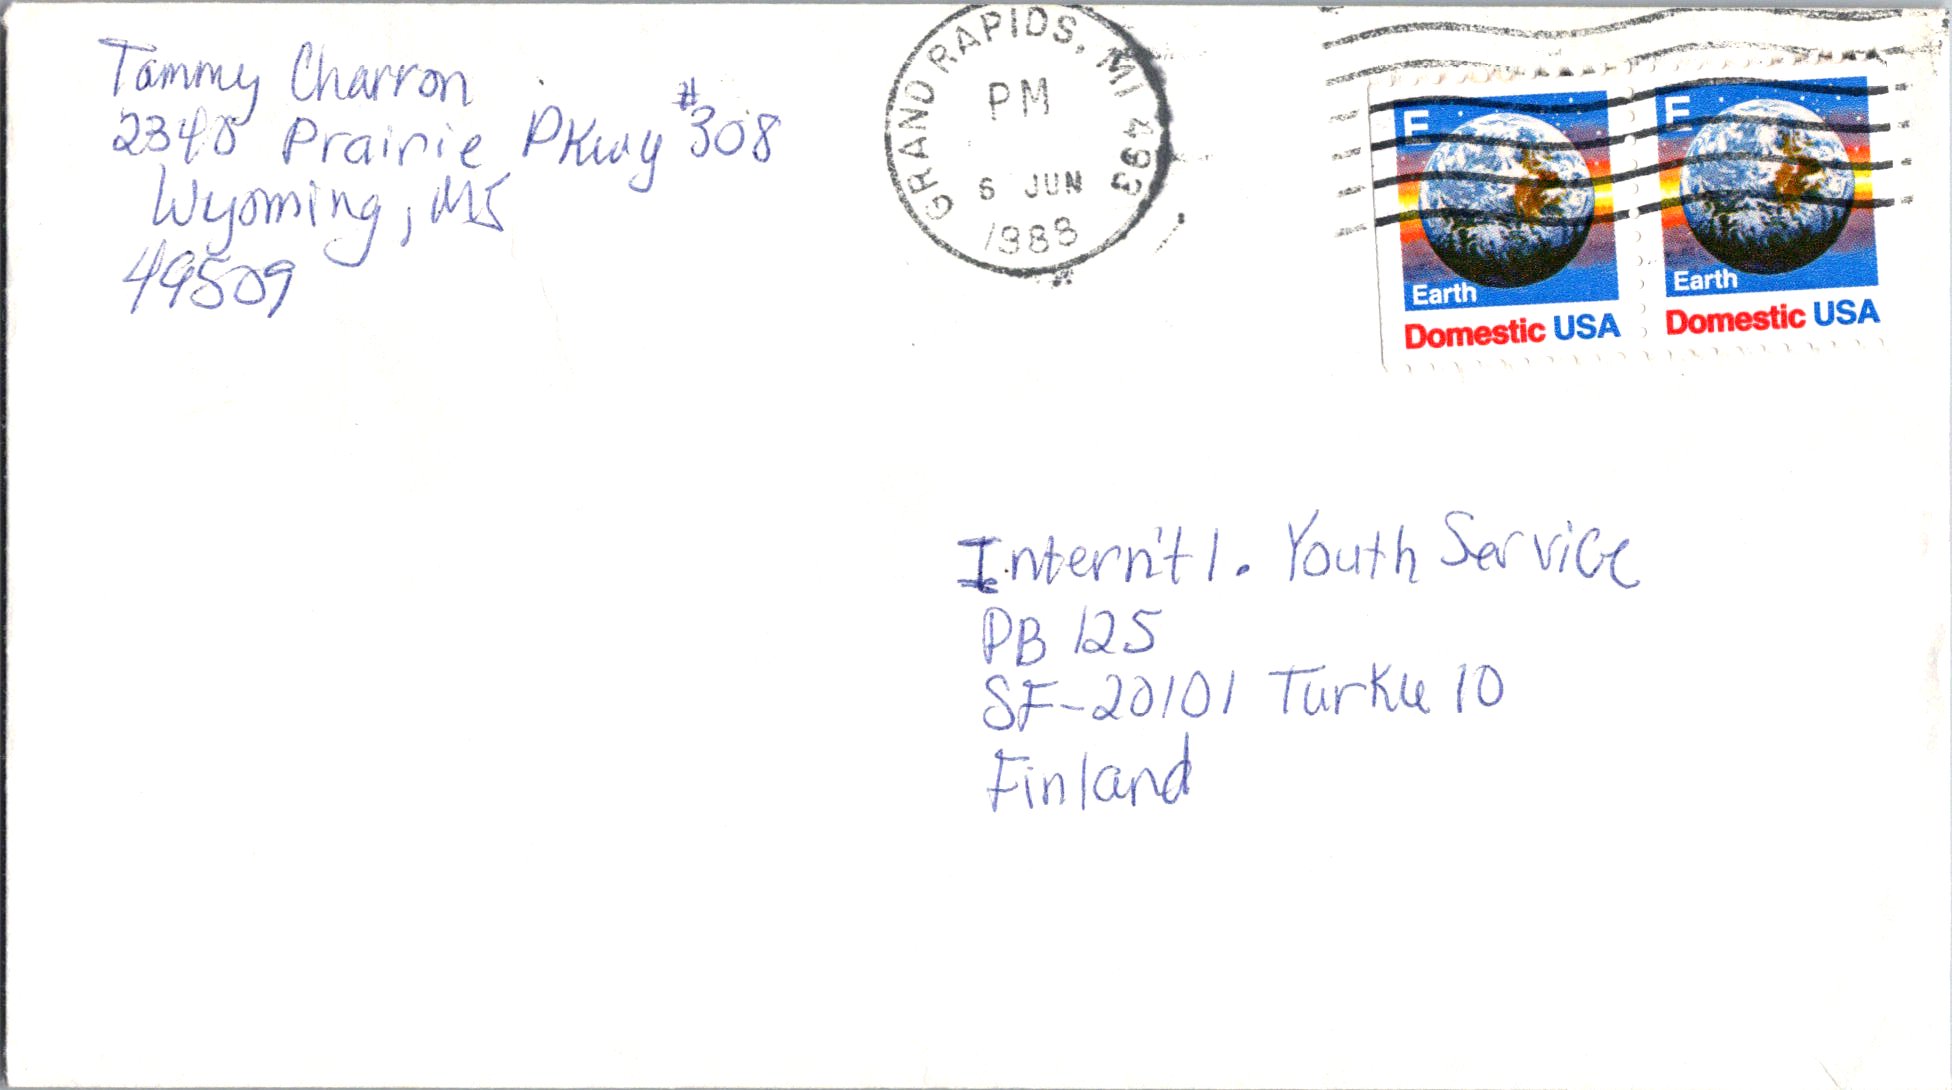 Tammy Charron
2340 Prairie Pkwy #308
Wyoming, MI
49509
GRAND RAPIDS, MI 493
PM
6 JUN
1988
E
Earth
Domestic USA
E
Earth
Domestic USA
Intern't l. Youth Service
PB 125
SF-20101 Turku 10
Finland